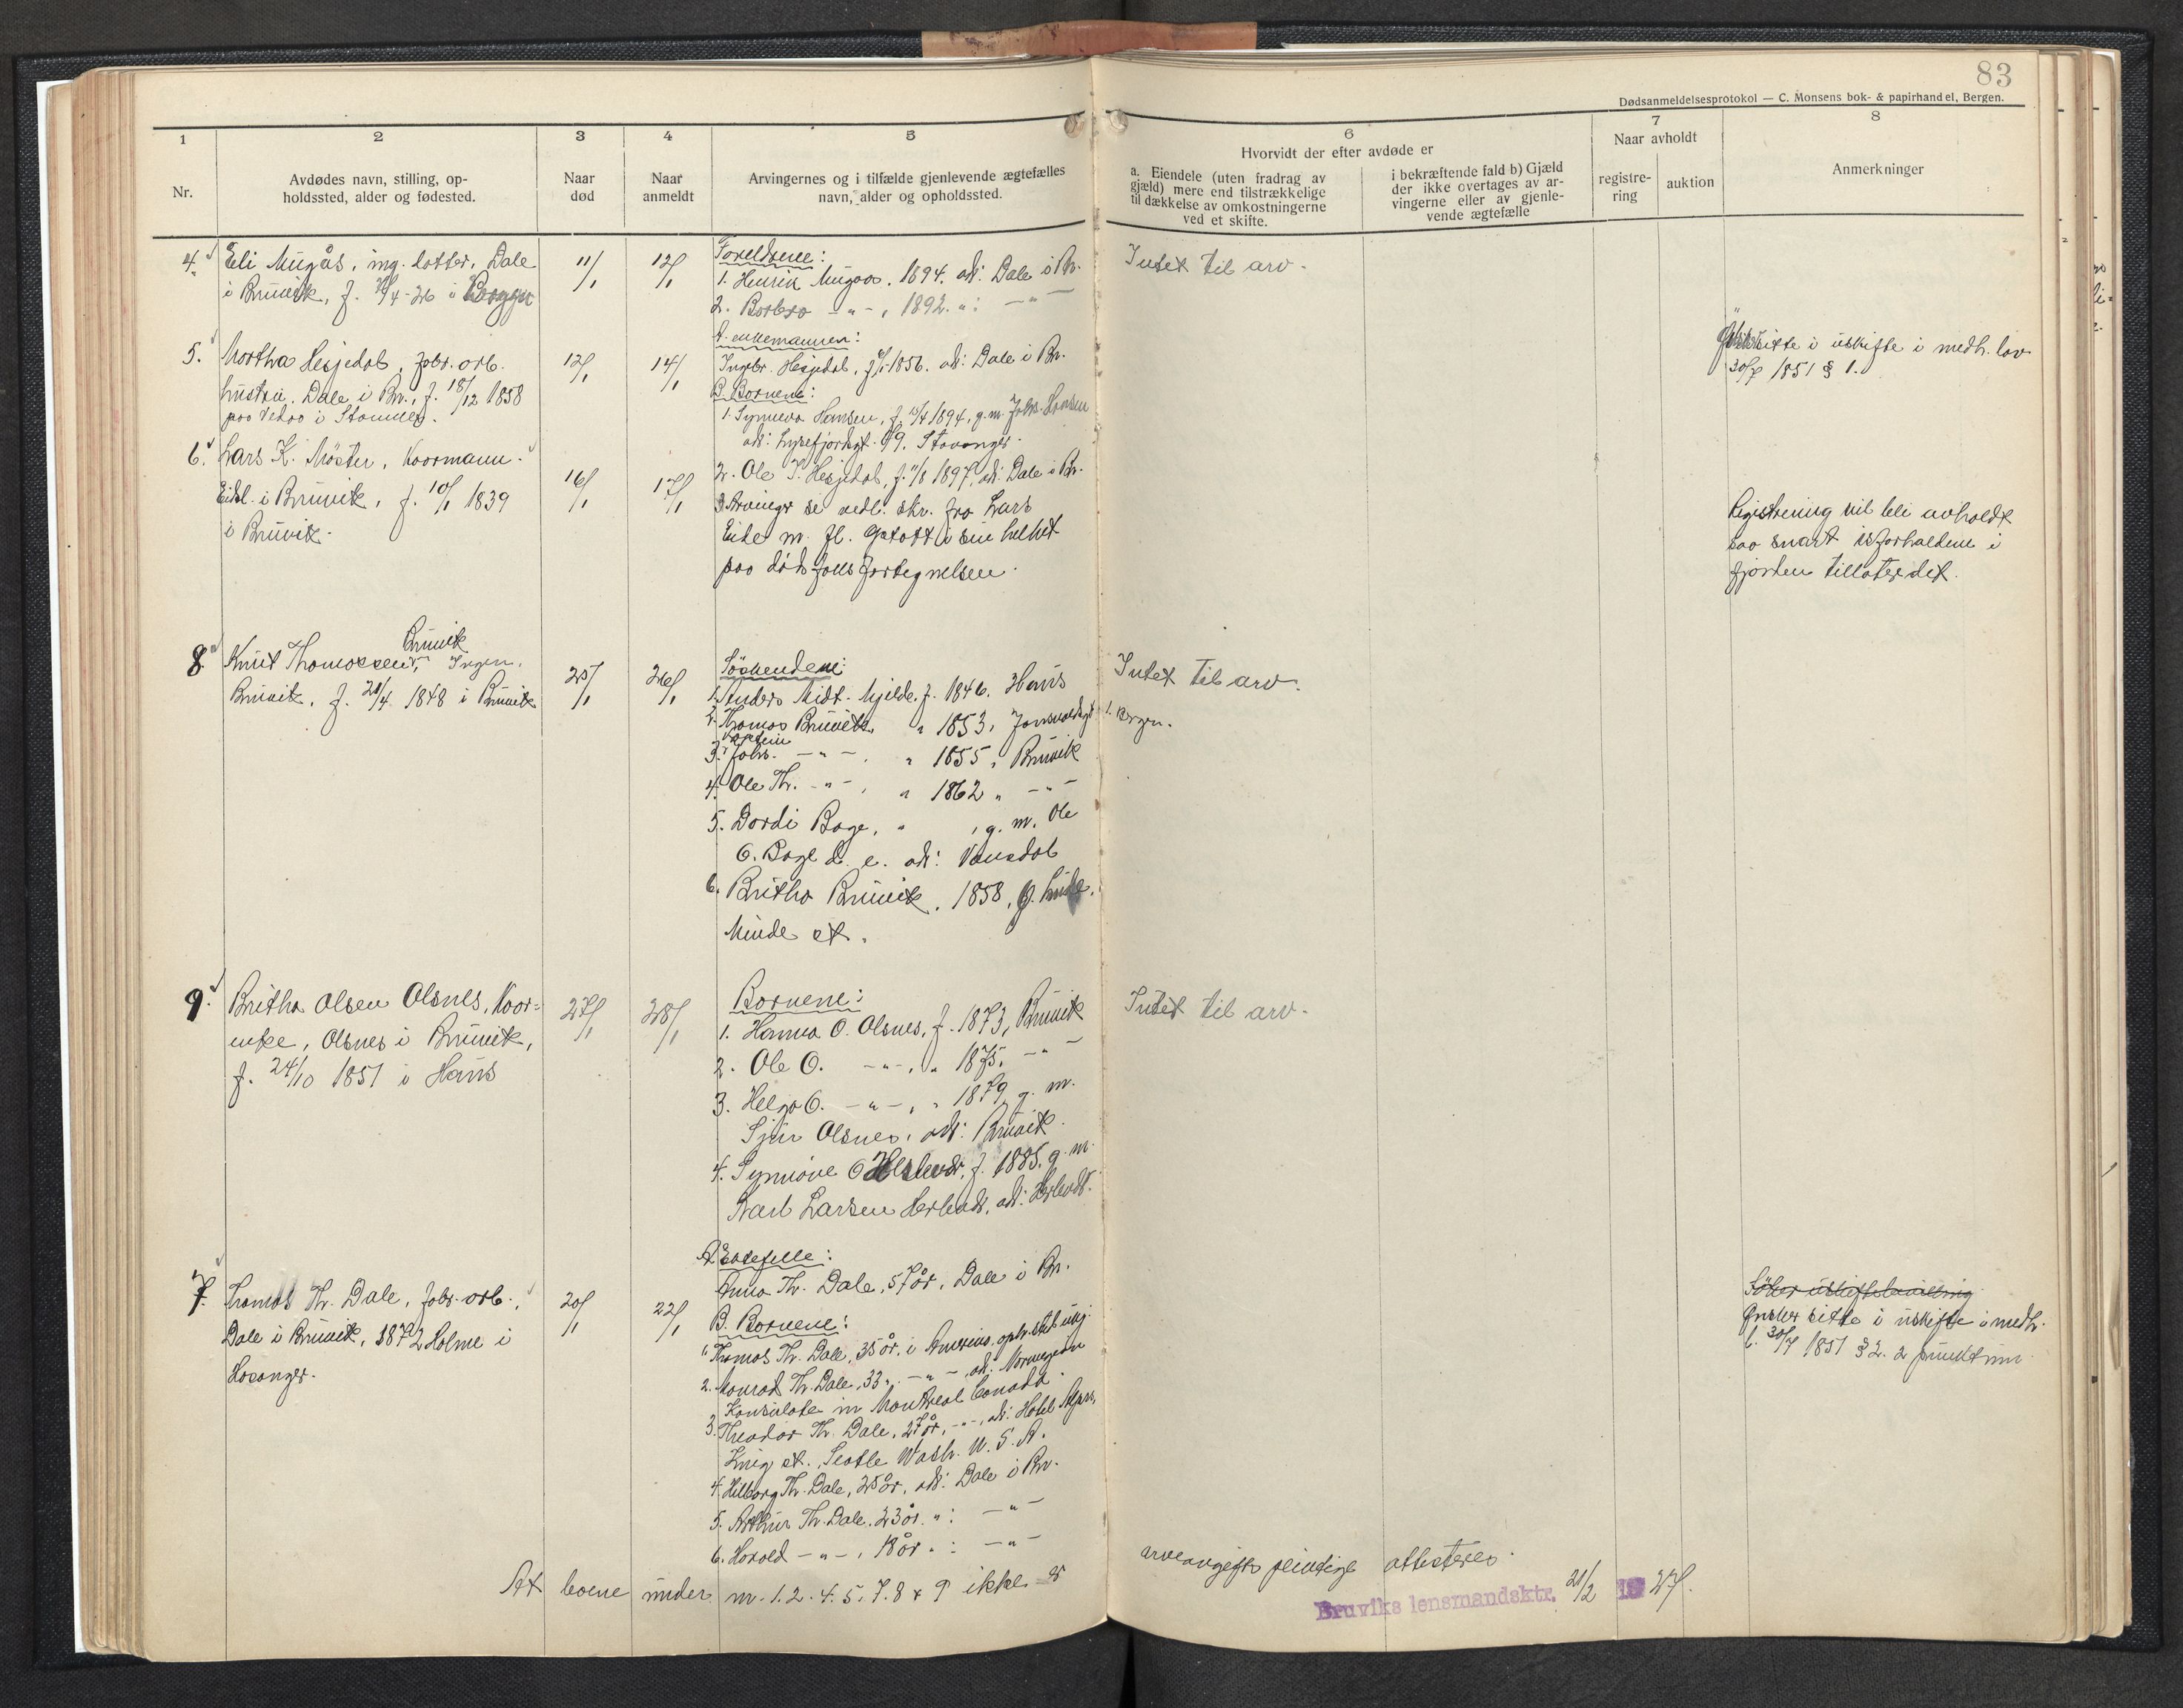 83
Dødsanmeldelsesprotokol — C. Monsens bok- & papirhandel, Bergen.
1 2 3 4 5 6 7 8
Nr.
Avdødes navn, stilling, op-
holdssted, alder og fødested.
Naar
død
Naar
anmeldt
Arvingernes og i tilfælde gjenlevende ægtefælles
navn, alder og opholdssted.
Hvorvidt der efter avdøde er
a. Eiendele (uten fradrag av
gjæld) mere end tilstrækkelige
til dækkelse av omkostningerne
ved et skifte.
i bekræftende fald b) Gjæld
der ikke overtages av ar-
vingerne eller av gjenle-
vende ægtefælle
Naar avholdt
registre-
ring
auktion
Anmerkninger
4. Eli Mügås, ug. dotter, Dale
i Brüvik, f. /4-26 i Bergen
11/1
12/1
Foreldrene:
1. Henrik Mügaas. 1894. adr: Dale i Br.
2. Barbra -"-, 1892. ": -"-
Intet til arv.
5. Martha Hesjedal, fabr. arb.
hustru, Dale i Br., f. 18/12 1858
paa i Stamnes.
12/1
14/1
A. enkemannen:
Ingebr. Hesjedal, f. 1856. adr: Dale i Br.
B. Barnene:
1. Synneva Hansen, f. 1894, g. m. Johs. Hansen
adr: Lysefjordgt. 9. Stavanger.
2. Ole I. Hesjedal, f. 1897, adr: Dale i Br.
sitte i uskifte i medh. lov
30/7 1851 § 1.
6. Lars K. Mjøster, Kaarmann.
Eidsl. i Brüvik, f. 10/1 1839
i Brüvik.
16/1
17/1
Arvinger se vedl. skr. fra Lars
Eide m. fl. i sin helhet
paa dødsfallsfortegnelsen.
Registrering vil bli avholdt
saa snart isforholdene i
fjorden tillater det.
8. Knut Thomassen Brüvik, Ingen.
Brüvik, f. 21/4. 1848 i Brüvik
25/1
26/1
Søskendene:
1. Anders Midt-Mjelde, f. 1846. Haus
2. Thomas Brüvik, " 1853, Jonsvoldsgt 1. Bergen.
Kaptein
3. Johs. -"-, " 1855 " Brüvik
4. Ole Th. -"-, " 1862 " -"-
5. Dordi Boge, " , g. m. Ole
O. Boge d. e. adr: Vaksdal
6. Britha Brüvik. 1858,
Minde st.
Intet til arv.
9. Britha Olsen Olsnes, Kaar-
enke, Olsnes i Brüvik,
f. 24/10 1851 i Haus
27/1
28/1
Barnene:
1. Hanna O. Olsnes, f. 1873, Brüvik
2. Ole O. -"-, " 1875, -"-
3. Helga O. -"-, " 1879, g. m.
Sjur Olsnes, adr: Brüvik.
4. Synnöve O. f. 1885. g. m.
Karl Larsen
Intet til arv.
7. Tomas Th. Dale, fabr. arb.,
Dale i Brüvik, 1872 Holme i
Hosanger.
20/1
22/1
A. Ektefelle:
Anna Th. Dale, 57 år, Dale i Br.
B. Barnene:
1. Thomas Th. Dale, 35 år, i Amerika, oph. sted ukj.
2. Konrad Th. Dale, 33 ", -"-, adr: Norwegean
Konsulate in Montreal Canada.
3. Theodor Th. Dale, 27 år, -"-, adr: Hotel
King st., Seatle Wash. U. S. A.
4. Hilborg Th. Dale, 25 år, adr: Dale i Br.
5. Arthur Th. Dale, 23 år, ": -"-
6. Harald -"-, 18 år ": -"-
Søker uskiftebevilling
Ønsker sitte i uskifte i medh.
l. 30/7 1851 § 2. 2 punktum.
At boene under nr. 1. 2. 4. 5. 7. 8 & 9 ikke er arveavgifts pliktige attesteres.
Bruviks lensmandsktr. 21/2 19 27.